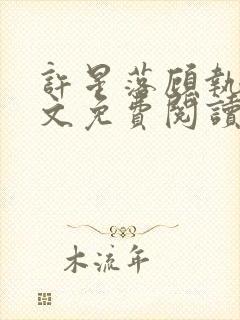 許星落顧執
文免費閱讀
木流年